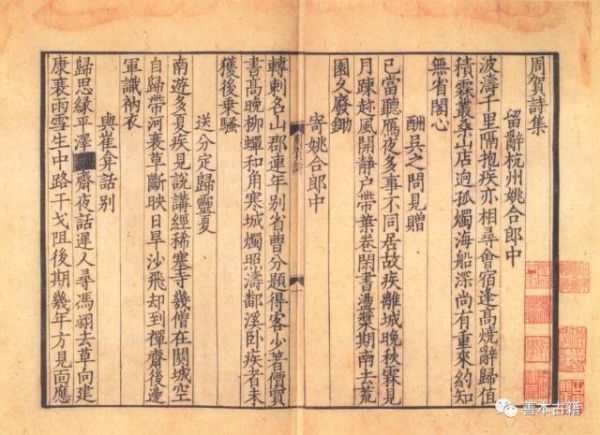 周賀詩集
留辭杭州姚合郎中
波濤千里隔抱疾亦相尋會宿逢高燒辭歸值
積霖叢桑山店迥孤燭海船深尚有重來約知
無省閣心
酬吳之問見贈
已當聽鴈夜多事不同居故疾離城晚秋霖見
月疎趂風開靜户帶葉卷閑書盪槳期南去荒
園久廢鋤
寄姚合郎中
轉刺名山郡連年別省曹分題得客少著價買
書高晚柳蟬和角寒城燭照濤鄱溪卧疾者未
獲後乗騷
送分定歸靈夏
南遊多夏疾見說講經稀塞寺幾僧在關城空
自歸帶河衰草斷映日旱沙飛却到禪齋後邊
軍識衲衣
與崔弇話別
歸思緑平澤齋夜話遲人尋馮翊去草向建
康衰雨雪生中路干戈阻後期幾年方見面應
善本古籍